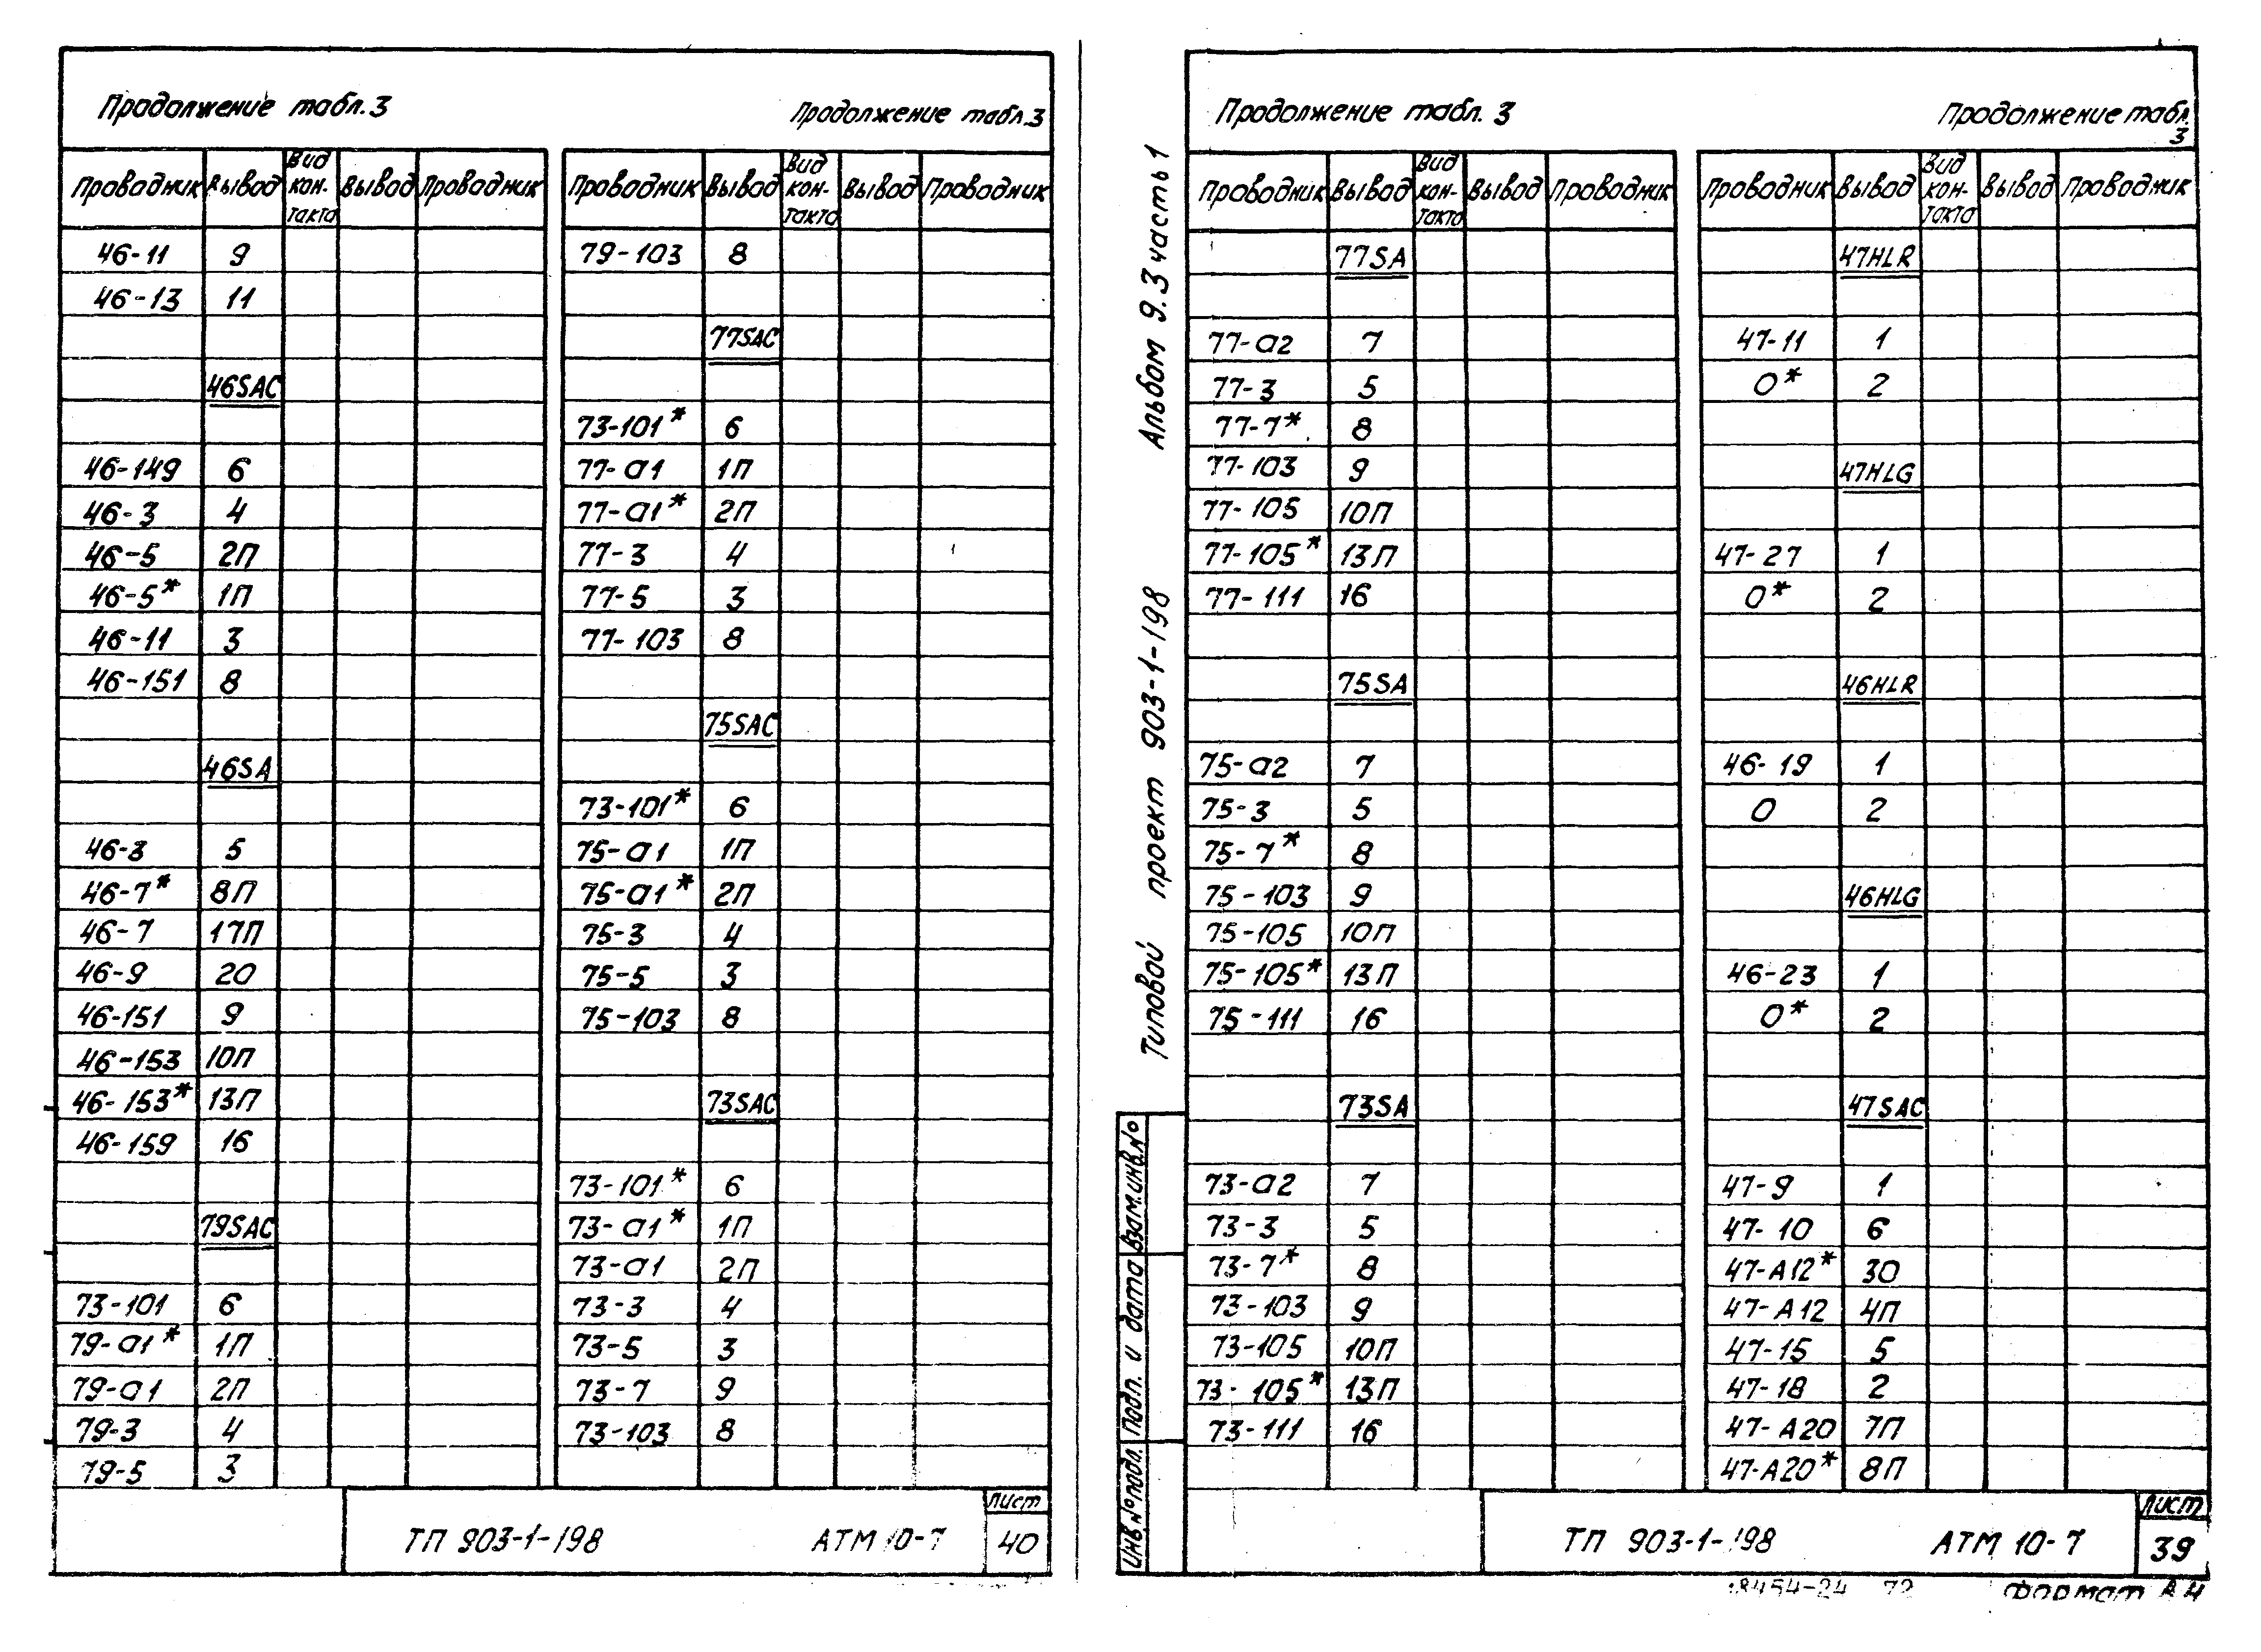 Продолжение табл.3
Продолжение табл.3
Проводник Вывод Вид кон-такта Вывод Проводник
46-11 9
46-13 11
46SAC
46-149 6
46-3 4
46-5 2П
46-5* 1П
46-11 3
46-151 8
46SA
46-3 5
46-7* 8П
46-7 17П
46-9 20
46-151 9
46-153 10П
46-153* 13П
46-159 16
79SAC
73-101 6
79-а1* 1П
79-а1 2П
79-3 4
79-5 3
Проводник Вывод Вид кон-такта Вывод Проводник
79-103 8
77SAC
73-101* 6
77-а1 1П
77-а1* 2П
77-3 4
77-5 3
77-103 8
75SAC
73-101* 6
75-а1 1П
75-а1* 2П
75-3 4
75-5 3
75-103 8
73SAC
73-101* 6
73-а1* 1П
73-а1 2П
73-3 4
73-5 3
73-7 9
73-103 8
ТП 903-1-198 АТМ 10-7
Лист
40
Альбом 9.3 часть 1
Типовой проект 903-1-198
Взам.инв.№
Подп. и дата
Инв.№подл.
Продолжение табл. 3
Продолжение табл.
3
Проводник Вывод Вид кон-такта Вывод Проводник
77SA
77-а2 7
77-3 5
77-7* 8
77-103 9
77-105 10П
77-105* 13П
77-111 16
75SA
75-а2 7
75-3 5
75-7* 8
75-103 9
75-105 10П
75-105* 13П
75-111 16
73SA
73-а2 7
73-3 5
73-7* 8
73-103 9
73-105 10П
73-105* 13П
73-111 16
Проводник Вывод Вид кон-такта Вывод Проводник
47HLR
47-11 1
0* 2
47HLG
47-27 1
0* 2
46HLR
46-19 1
0 2
46HLG
46-23 1
0* 2
47SAC
47-9 1
47-10 6
47-А12* 30
47-А12 4П
47-15 5
47-18 2
47-А20 7П
47-А20* 8П
ТП 903-1-198 АТМ 10-7
Лист
39
18454-24 72 Формат А4